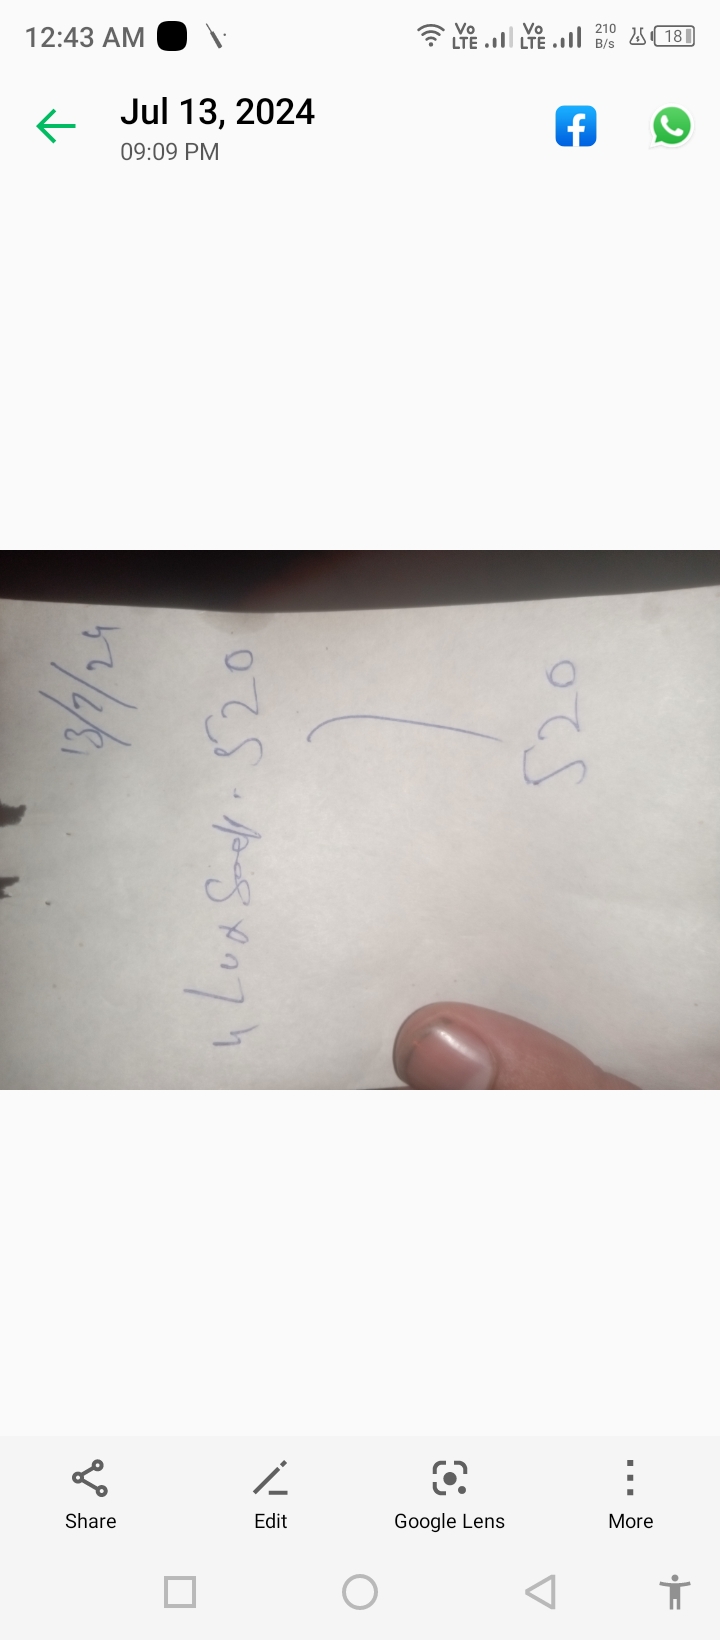 12:43 AM
Vo LTE Vo LTE 210 B/s 18
Jul 13, 2024
09:09 PM
13/7/24
4 Lux Soap. 520
520
Share Edit Google Lens More